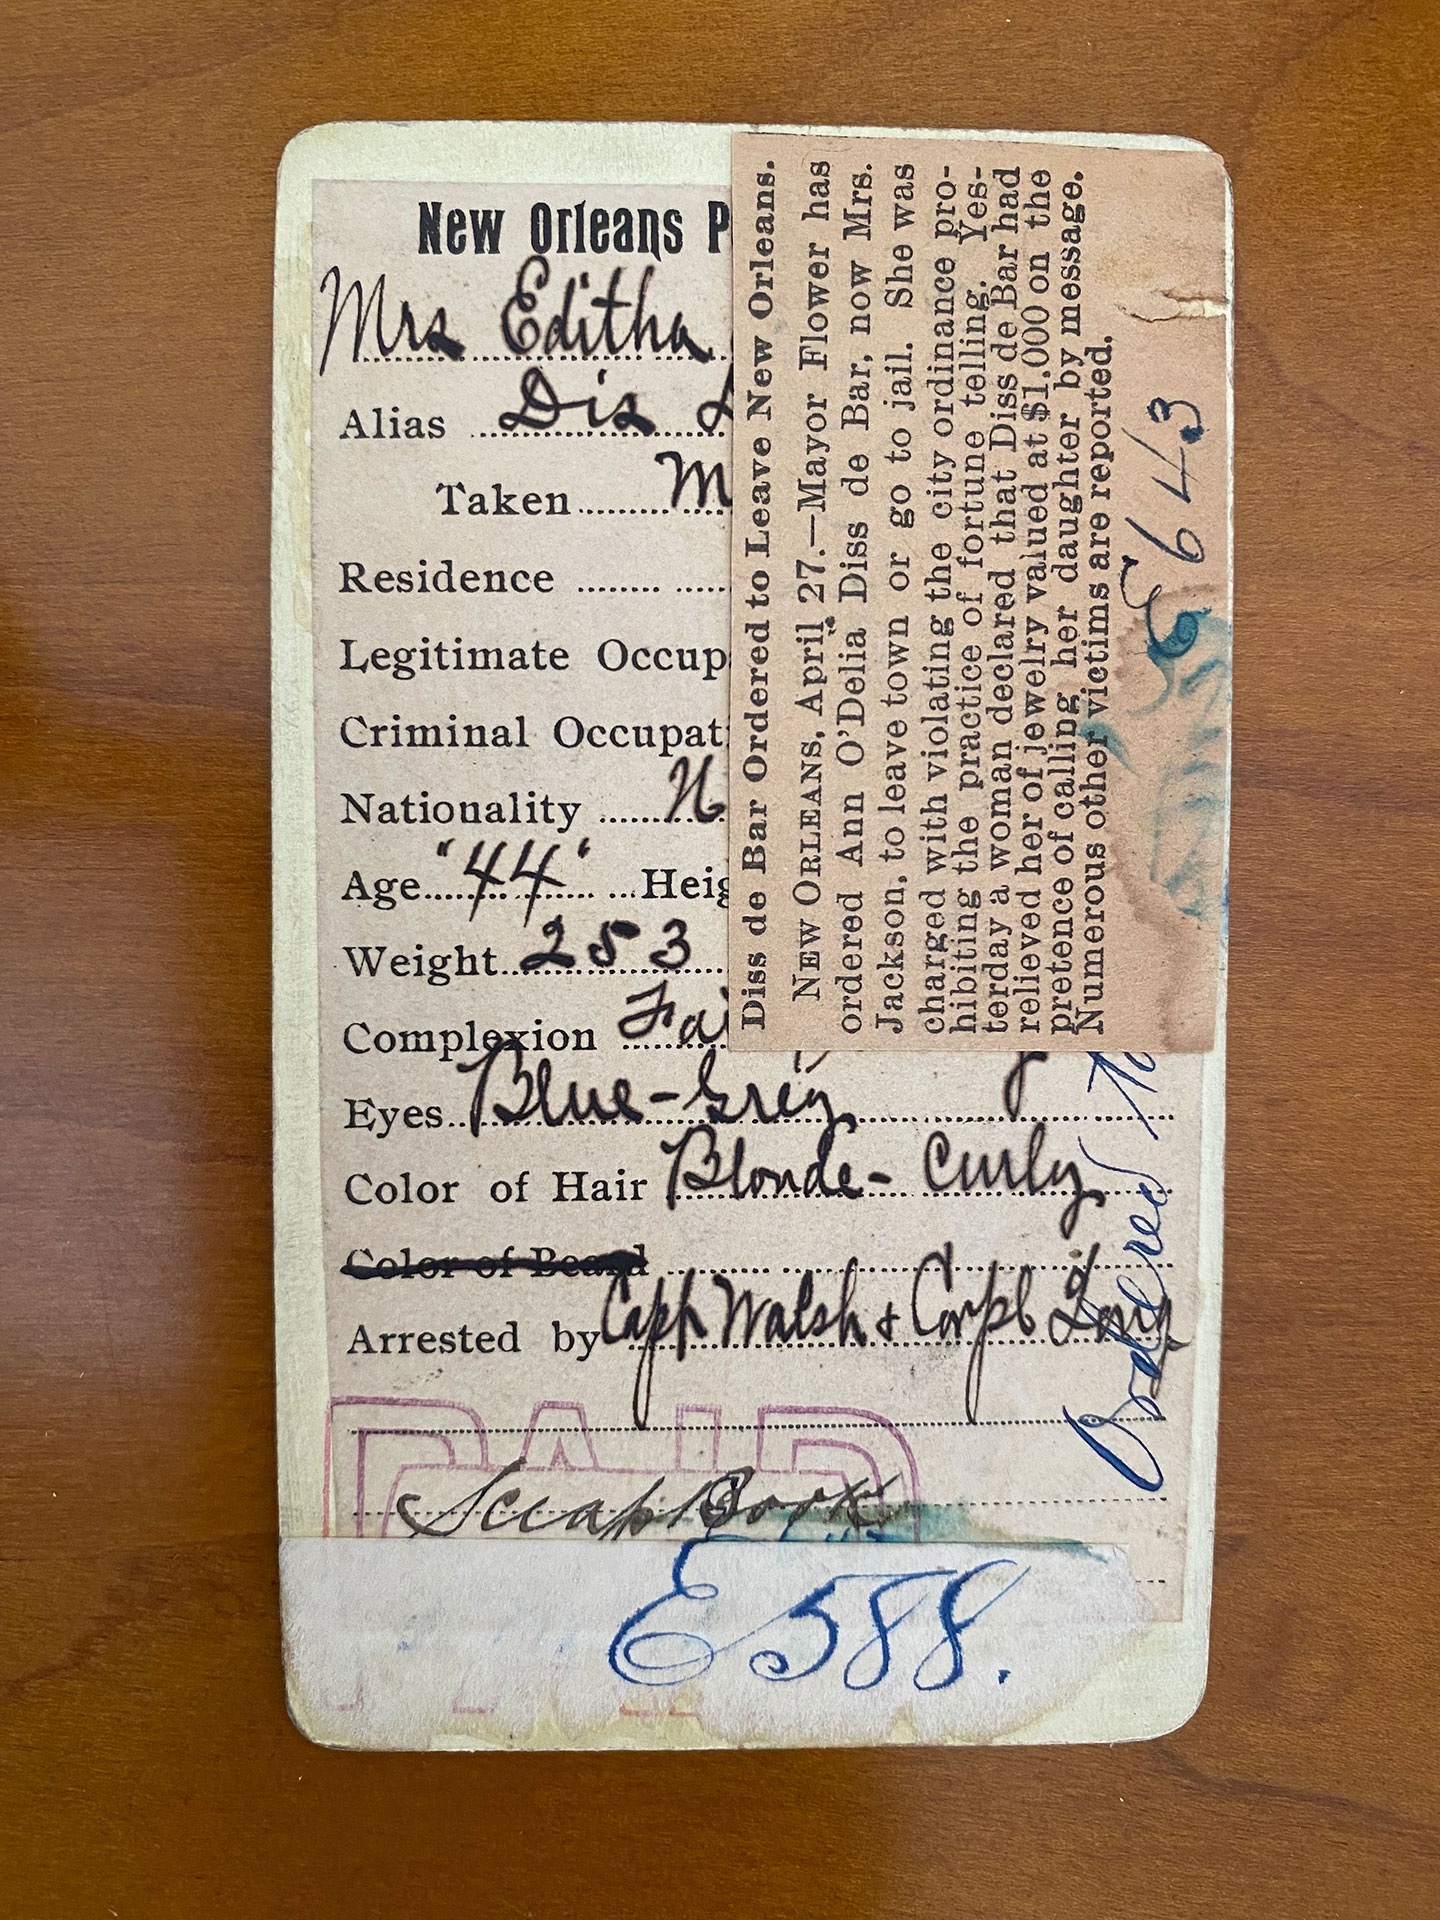 New Orleans P
Mrs Editha
Alias Dis
Taken M
Residence
Legitimate Occup
Criminal Occupat
Nationality
Age "44" Heig
Weight 253
Complexion Fai
Eyes Blue-Grey
Color of Hair Blonde - Curly
Color of Beard
Arrested by Capt Walsh & Corpl Long
PAID
Scrap Book
E588.
Diss de Bar Ordered to Leave New Orleans.
NEW ORLEANS, April 27.—Mayor Flower has
ordered Ann O'Delia Diss de Bar, now Mrs.
Jackson, to leave town or go to jail. She was
charged with violating the city ordinance pro-
hibiting the practice of fortune telling. Yes-
terday a woman declared that Diss de Bar had
relieved her of jewelry valued at $1,000 on the
pretence of calling her daughter by message.
Numerous other victims are reported.
5643
Ordered To